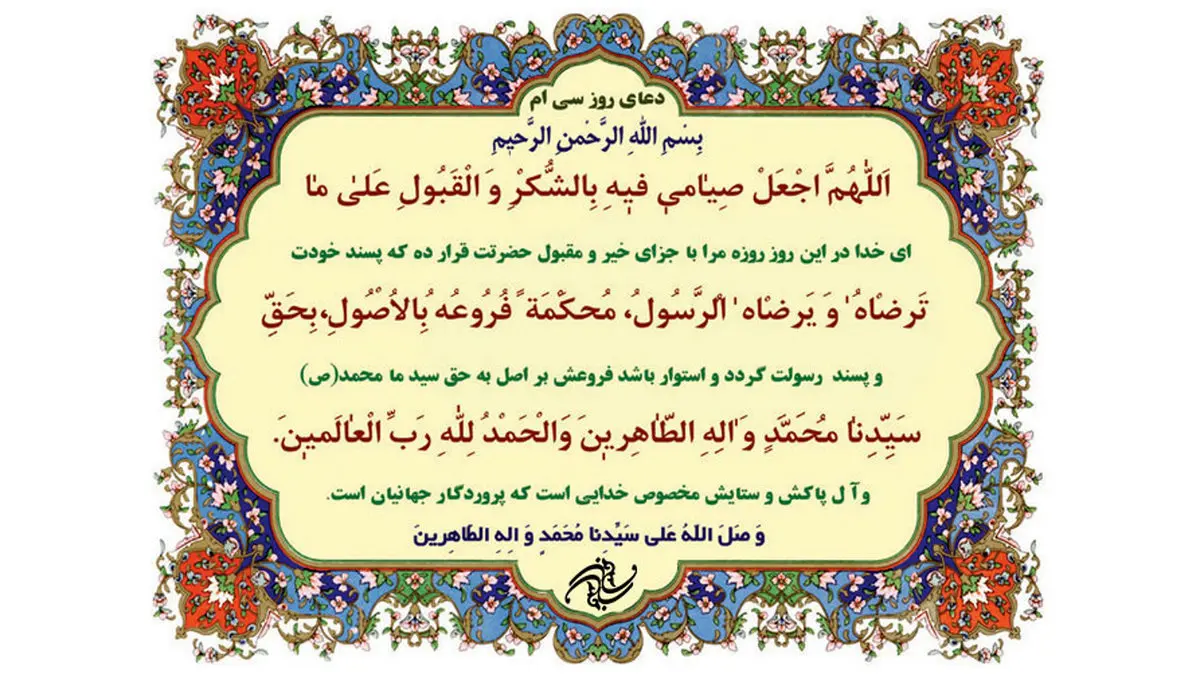 دعای روز سی ام
بِسْمِ اللهِ الرَّحْمنِ الرَّحیمِ
اَللّهُمَّ اجْعَلْ صِیامی فیهِ بِالشُّکرْ وَ الْقَبُولِ عَلی ما
ای خدا در این روز روزه مرا با جزای خیر و مقبول حضرتت قرار ده که پسند خودت
تَرضاهُ وَ یَرضاه الرَّسُولُ، مُحکَمَةً فُرُوعُه بِالاُصُولِ،بِحَقِّ
و پسند رسولت گردد و استوار باشد فروعش بر اصل به حق سید ما محمد(ص)
سَیِّدِنا مُحَمَّدٍ وَالِهِ الطّاهِرینَ وَالْحَمْدُ لِلّهِ رَبِّ الْعالَمینَ.
و آ ل پاکش و ستایش مخصوص خدایی است که پروردگار جهانیان است.
وَ صَلَ اللّهُ عَلی سَیِّدِنا مُحَمَدٍ وَ الِهِ الطّاهِرینَ